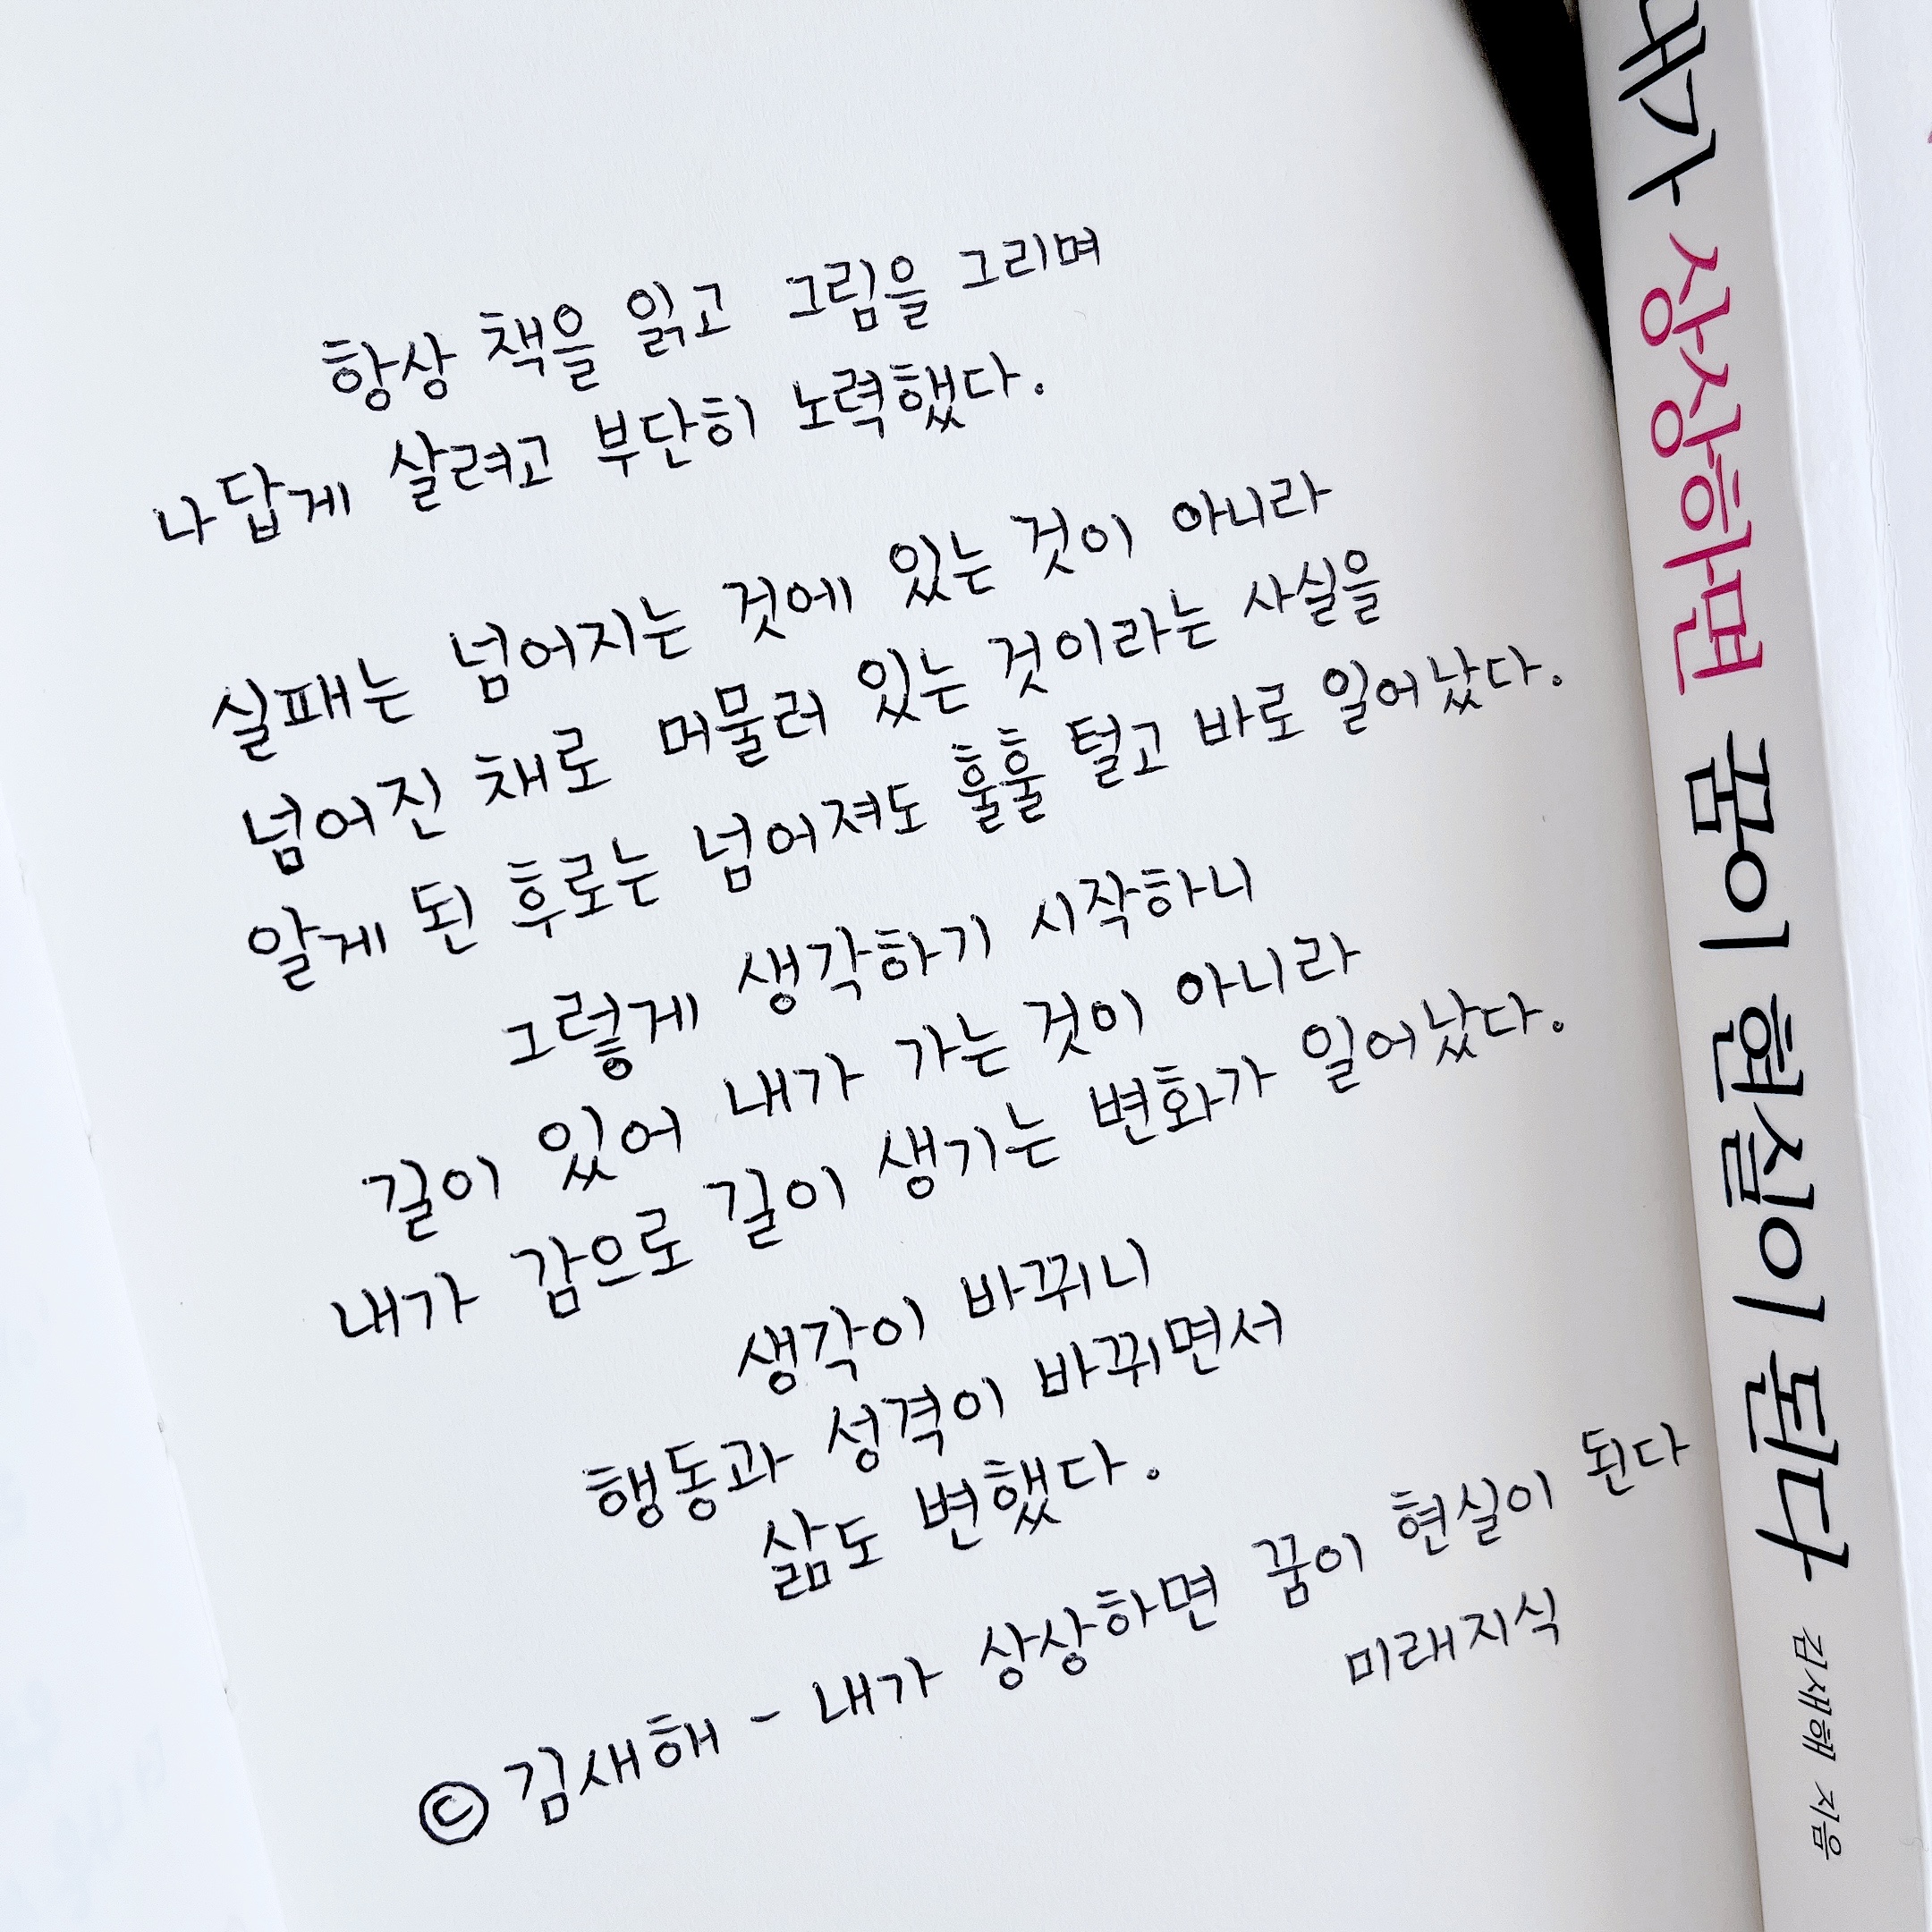 항상 책을 읽고 그림을 그리며
나답게 살려고 부단히 노력했다.
실패는 넘어지는 것에 있는 것이 아니라
넘어진 채로 머물러 있는 것이라는 사실을
알게 된 후로는 넘어져도 훌훌 털고 바로 일어났다.
그렇게 생각하기 시작하니
길이 있어 내가 가는 것이 아니라
내가 감으로 길이 생기는 변화가 일어났다.
생각이 바뀌니
행동과 성격이 바뀌면서
삶도 변했다.
© 김새해 - 내가 상상하면 꿈이 현실이 된다
미래지식
내가 상상하면 꿈이 현실이 된다 김새해 지음